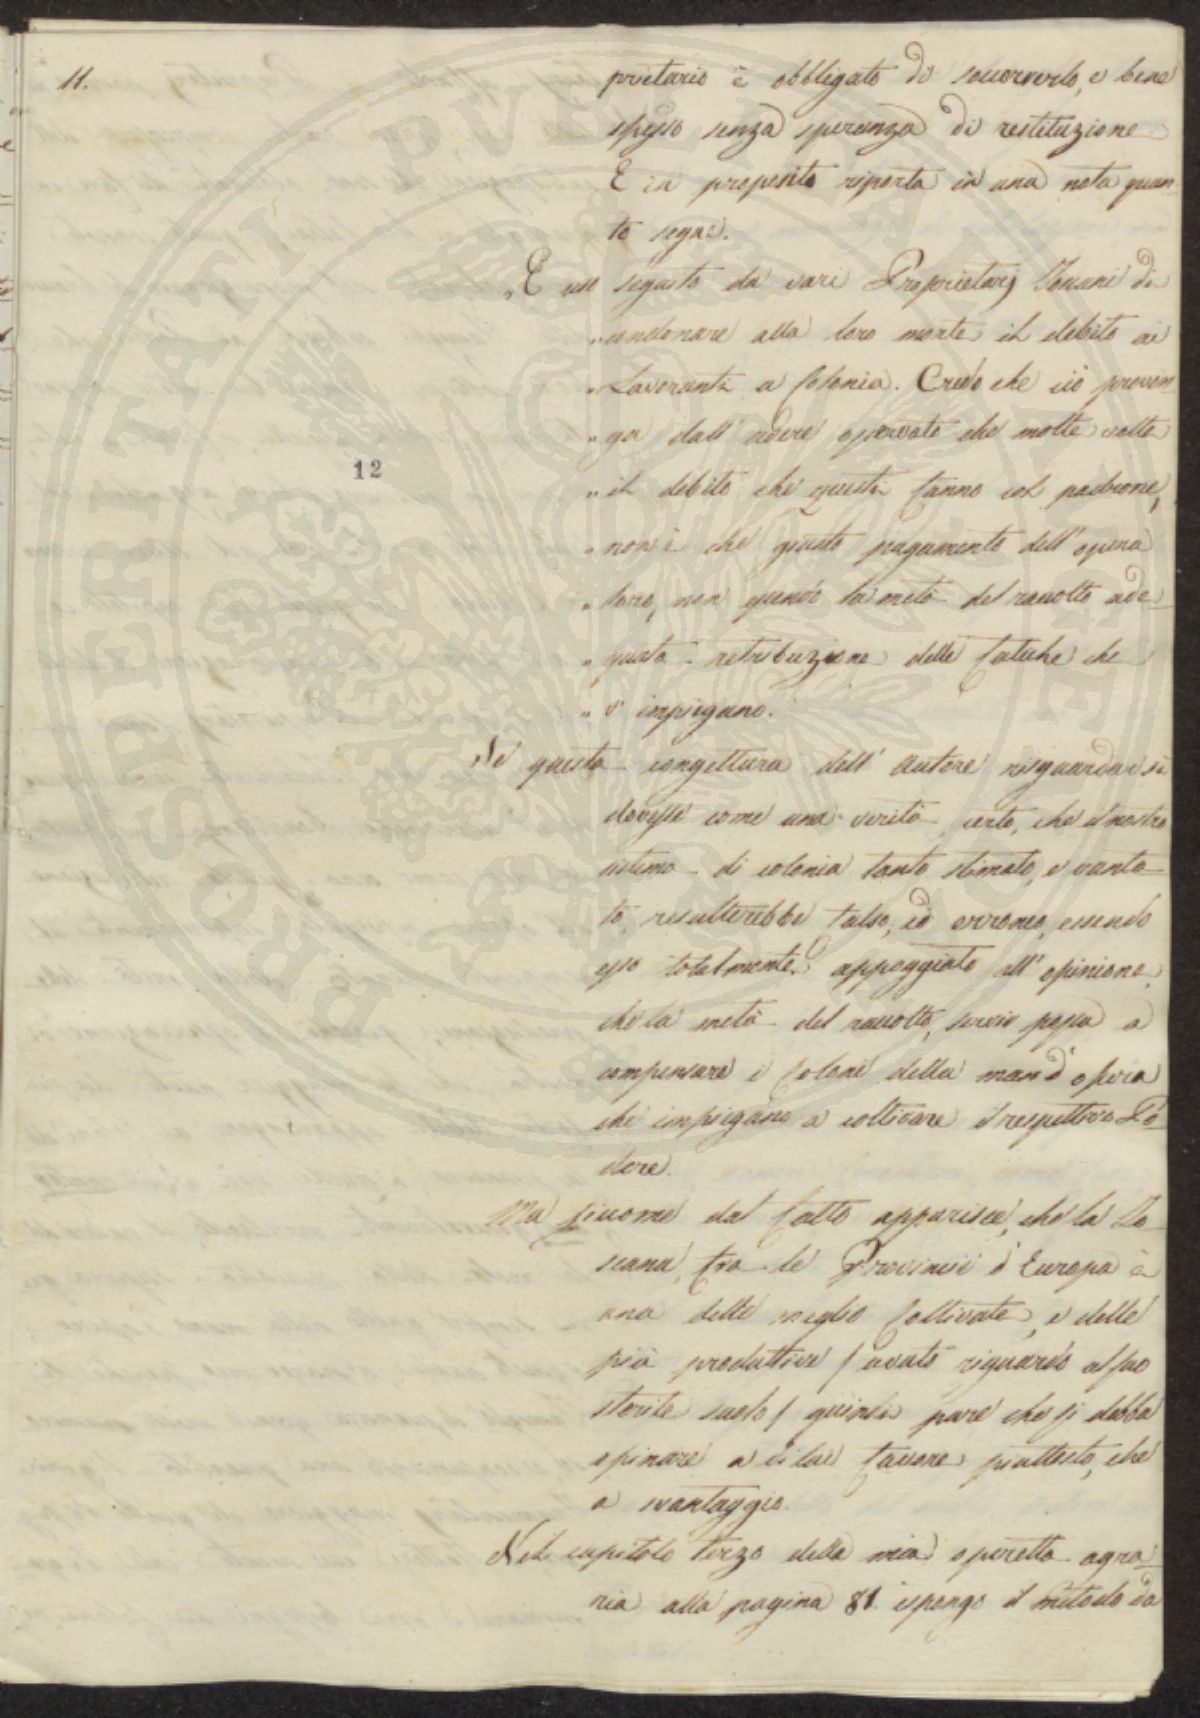 11.
prietario è obbligato di soccorrerlo, e bene
spesso senza speranza di restituzione
E in proposito riporta in una nota quan-
to segue.
„È uso seguito da vari Proprietarj Toscani di
„condonare alla loro morte il debito ai
„Lavoranti a Colonia. Credo che ciò proven-
„ga dall' avere osservato che molte volte
12
„il debito che questi fanno col padrone,
„non è che giusto pagamento dell' opera
„loro, non essendo la metà del raccolto ade-
„quata retribuzione delle fatiche che
„v' impiegano.
Se questa congettura dell' Autore risguardar si
dovesse come una verità certa, che il nostro
sistema di colonia tanto stimato, e vanta-
to, resulterebbe falso, ed erroneo, essendo
esso totalmente appoggiato all' opinione,
che la metà del raccolto, servir possa a
compensare i Coloni della man d' opera
che impiegano a coltivare il respettivo Po-
dere.
Ma siccome dal fatto apparisce, che la To-
scana, tra le Provincie d' Europa è
una delle meglio coltivate, e delle
più produttive / avuto riguardo al suo
sterile suolo / quindi pare che si debba
opinare a di lui favore piuttosto, che
a svantaggio.
Nel capitolo terzo della mia operetta agra-
ria alla pagina 81. espongo il metodo da
PROSPERITATI PVBLICAE